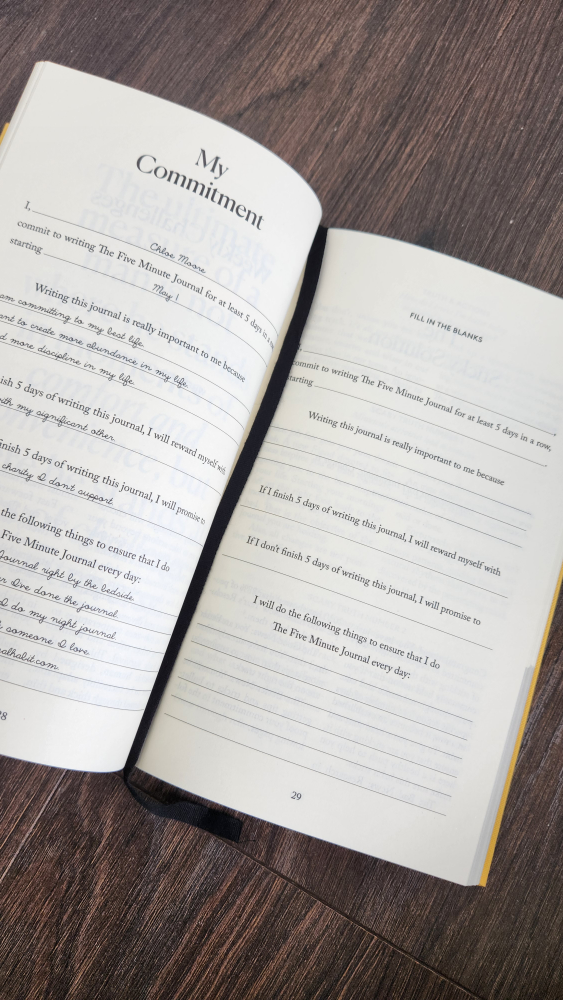 My
Commitment
I, Chloe Moore
commit to writing The Five Minute Journal for at least 5 days in a
starting May 1
Writing this journal is really important to me because
am committing to my best life.
to create more abundance in my life
more discipline in my life
5 days of writing this journal, I will reward myself with
with my significant other.
5 days of writing this journal, I will promise to
charity I don't support.
the following things to ensure that I do
Five Minute Journal every day:
Journal right by the bedside
I've done the journal
I do my night journal
someone I love
FILL IN THE BLANKS
commit to writing The Five Minute Journal for at least 5 days in a row,
starting
Writing this journal is really important to me because
If I finish 5 days of writing this journal, I will reward myself with
If I don't finish 5 days of writing this journal, I will promise to
I will do the following things to ensure that I do
The Five Minute Journal every day:
29